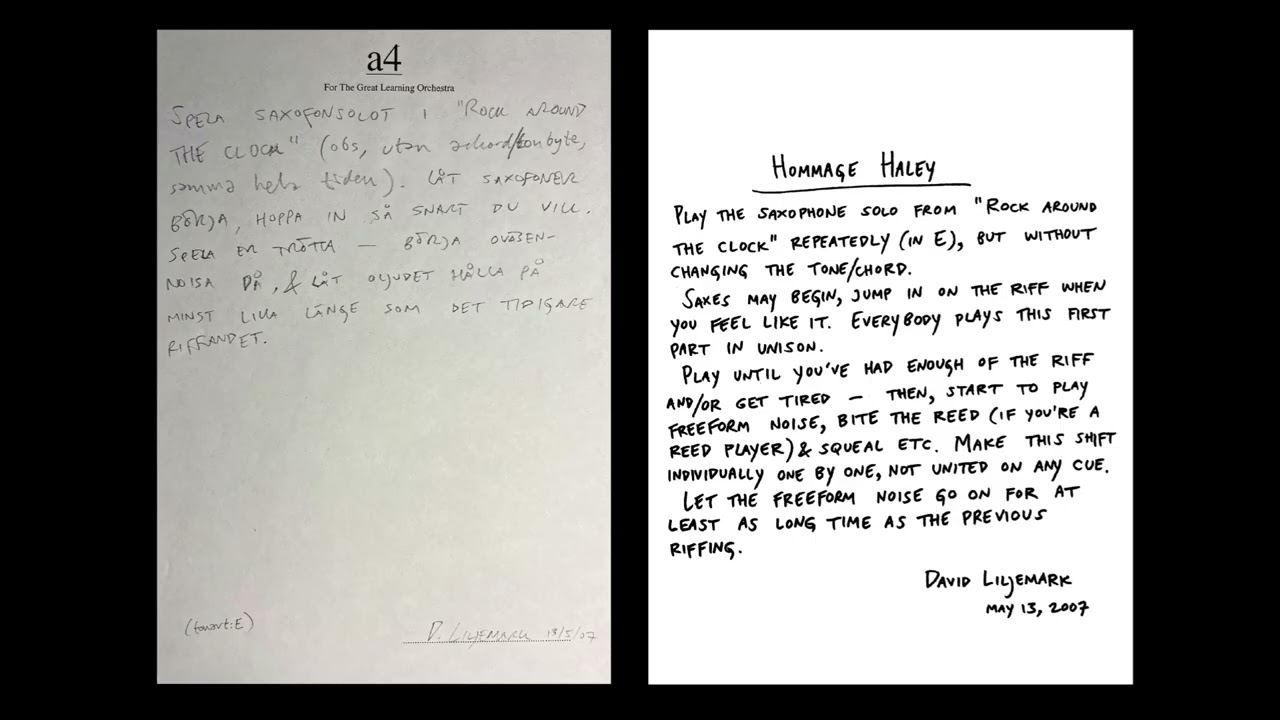 a4
For The Great Learning Orchestra
SPELA SAXOFONSOLOT I "ROCK AROUND
THE CLOCK" (obs, utan ackord/tonbyte,
samma hela tiden). LÅT SAXOFONER
BÖRJA, HOPPA IN SÅ SNART DU VILL.
SPELA ER TRÖTTA — BÖRJA OVÄSEN-
NOISA DÅ, & LÅT OLJUDET HÅLLA PÅ
MINST LIKA LÄNGE SOM DET TIDIGARE
RIFFANDET.
(tonart:E)
D. LILJEMARK 13/5/07
HOMMAGE HALEY
PLAY THE SAXOPHONE SOLO FROM "ROCK AROUND
THE CLOCK" REPEATEDLY (IN E), BUT WITHOUT
CHANGING THE TONE/CHORD.
SAXES MAY BEGIN, JUMP IN ON THE RIFF WHEN
YOU FEEL LIKE IT. EVERYBODY PLAYS THIS FIRST
PART IN UNISON.
PLAY UNTIL YOU'VE HAD ENOUGH OF THE RIFF
AND/OR GET TIRED — THEN, START TO PLAY
FREEFORM NOISE, BITE THE REED (IF YOU'RE A
REED PLAYER) & SQUEAL ETC. MAKE THIS SHIFT
INDIVIDUALLY ONE BY ONE, NOT UNITED ON ANY CUE.
LET THE FREEFORM NOISE GO ON FOR AT
LEAST AS LONG TIME AS THE PREVIOUS
RIFFING.
DAVID LILJEMARK
MAY 13, 2007